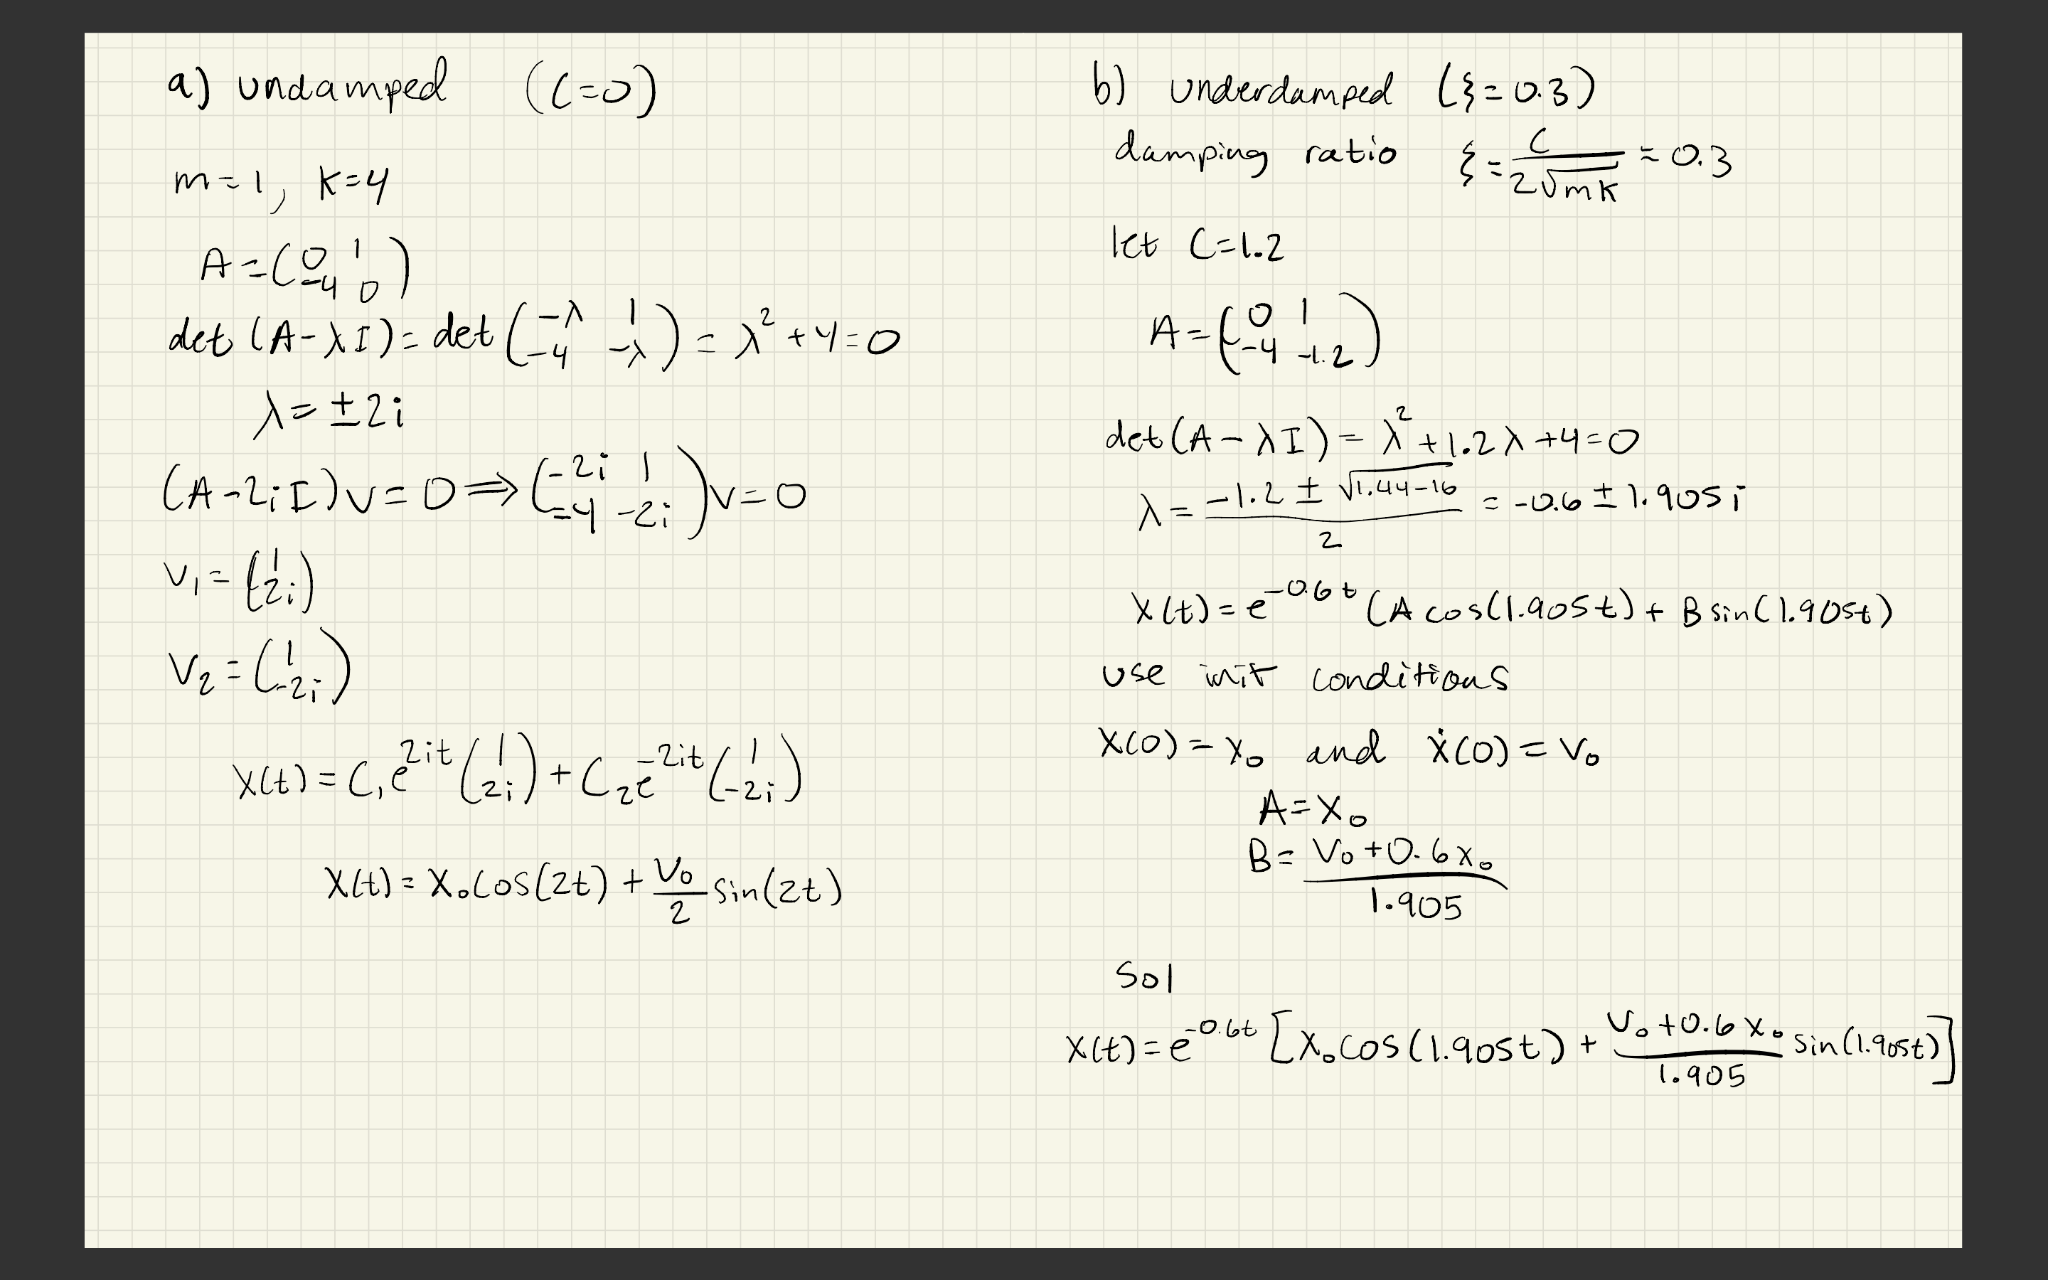 a) undamped (C=0)
m=1, k=4
A=(0 1
-4 0)
det (A-λI)= det (-λ 1
-4 -λ) = λ²+4=0
λ= ±2i
(A-2iI)v=0 ⇒ (-2i 1
-4 -2i)v=0
v₁= (1
2i)
v₂= (1
-2i)
x(t)= C₁e^{2it} (1
2i) + C₂e^{-2it} (1
-2i)
x(t)= x₀cos(2t) + v₀/2 sin(2t)
b) underdamped (ξ=0.3)
damping ratio ξ= C/(2√mk) = 0.3
let C=1.2
A=(0 1
-4 -1.2)
det(A-λI)= λ²+1.2λ+4=0
λ= (-1.2 ± √1.44-16)/2 = -0.6 ± 1.905i
x(t)= e^{-0.6t} (A cos(1.905t) + B sin(1.905t)
use init conditions
x(0)=x₀ and ẋ(0)=v₀
A=x₀
B= (v₀+0.6x₀)/1.905
Sol
x(t)= e^{-0.6t} [x₀cos(1.905t) + (v₀+0.6x₀)/1.905 sin(1.905t)]